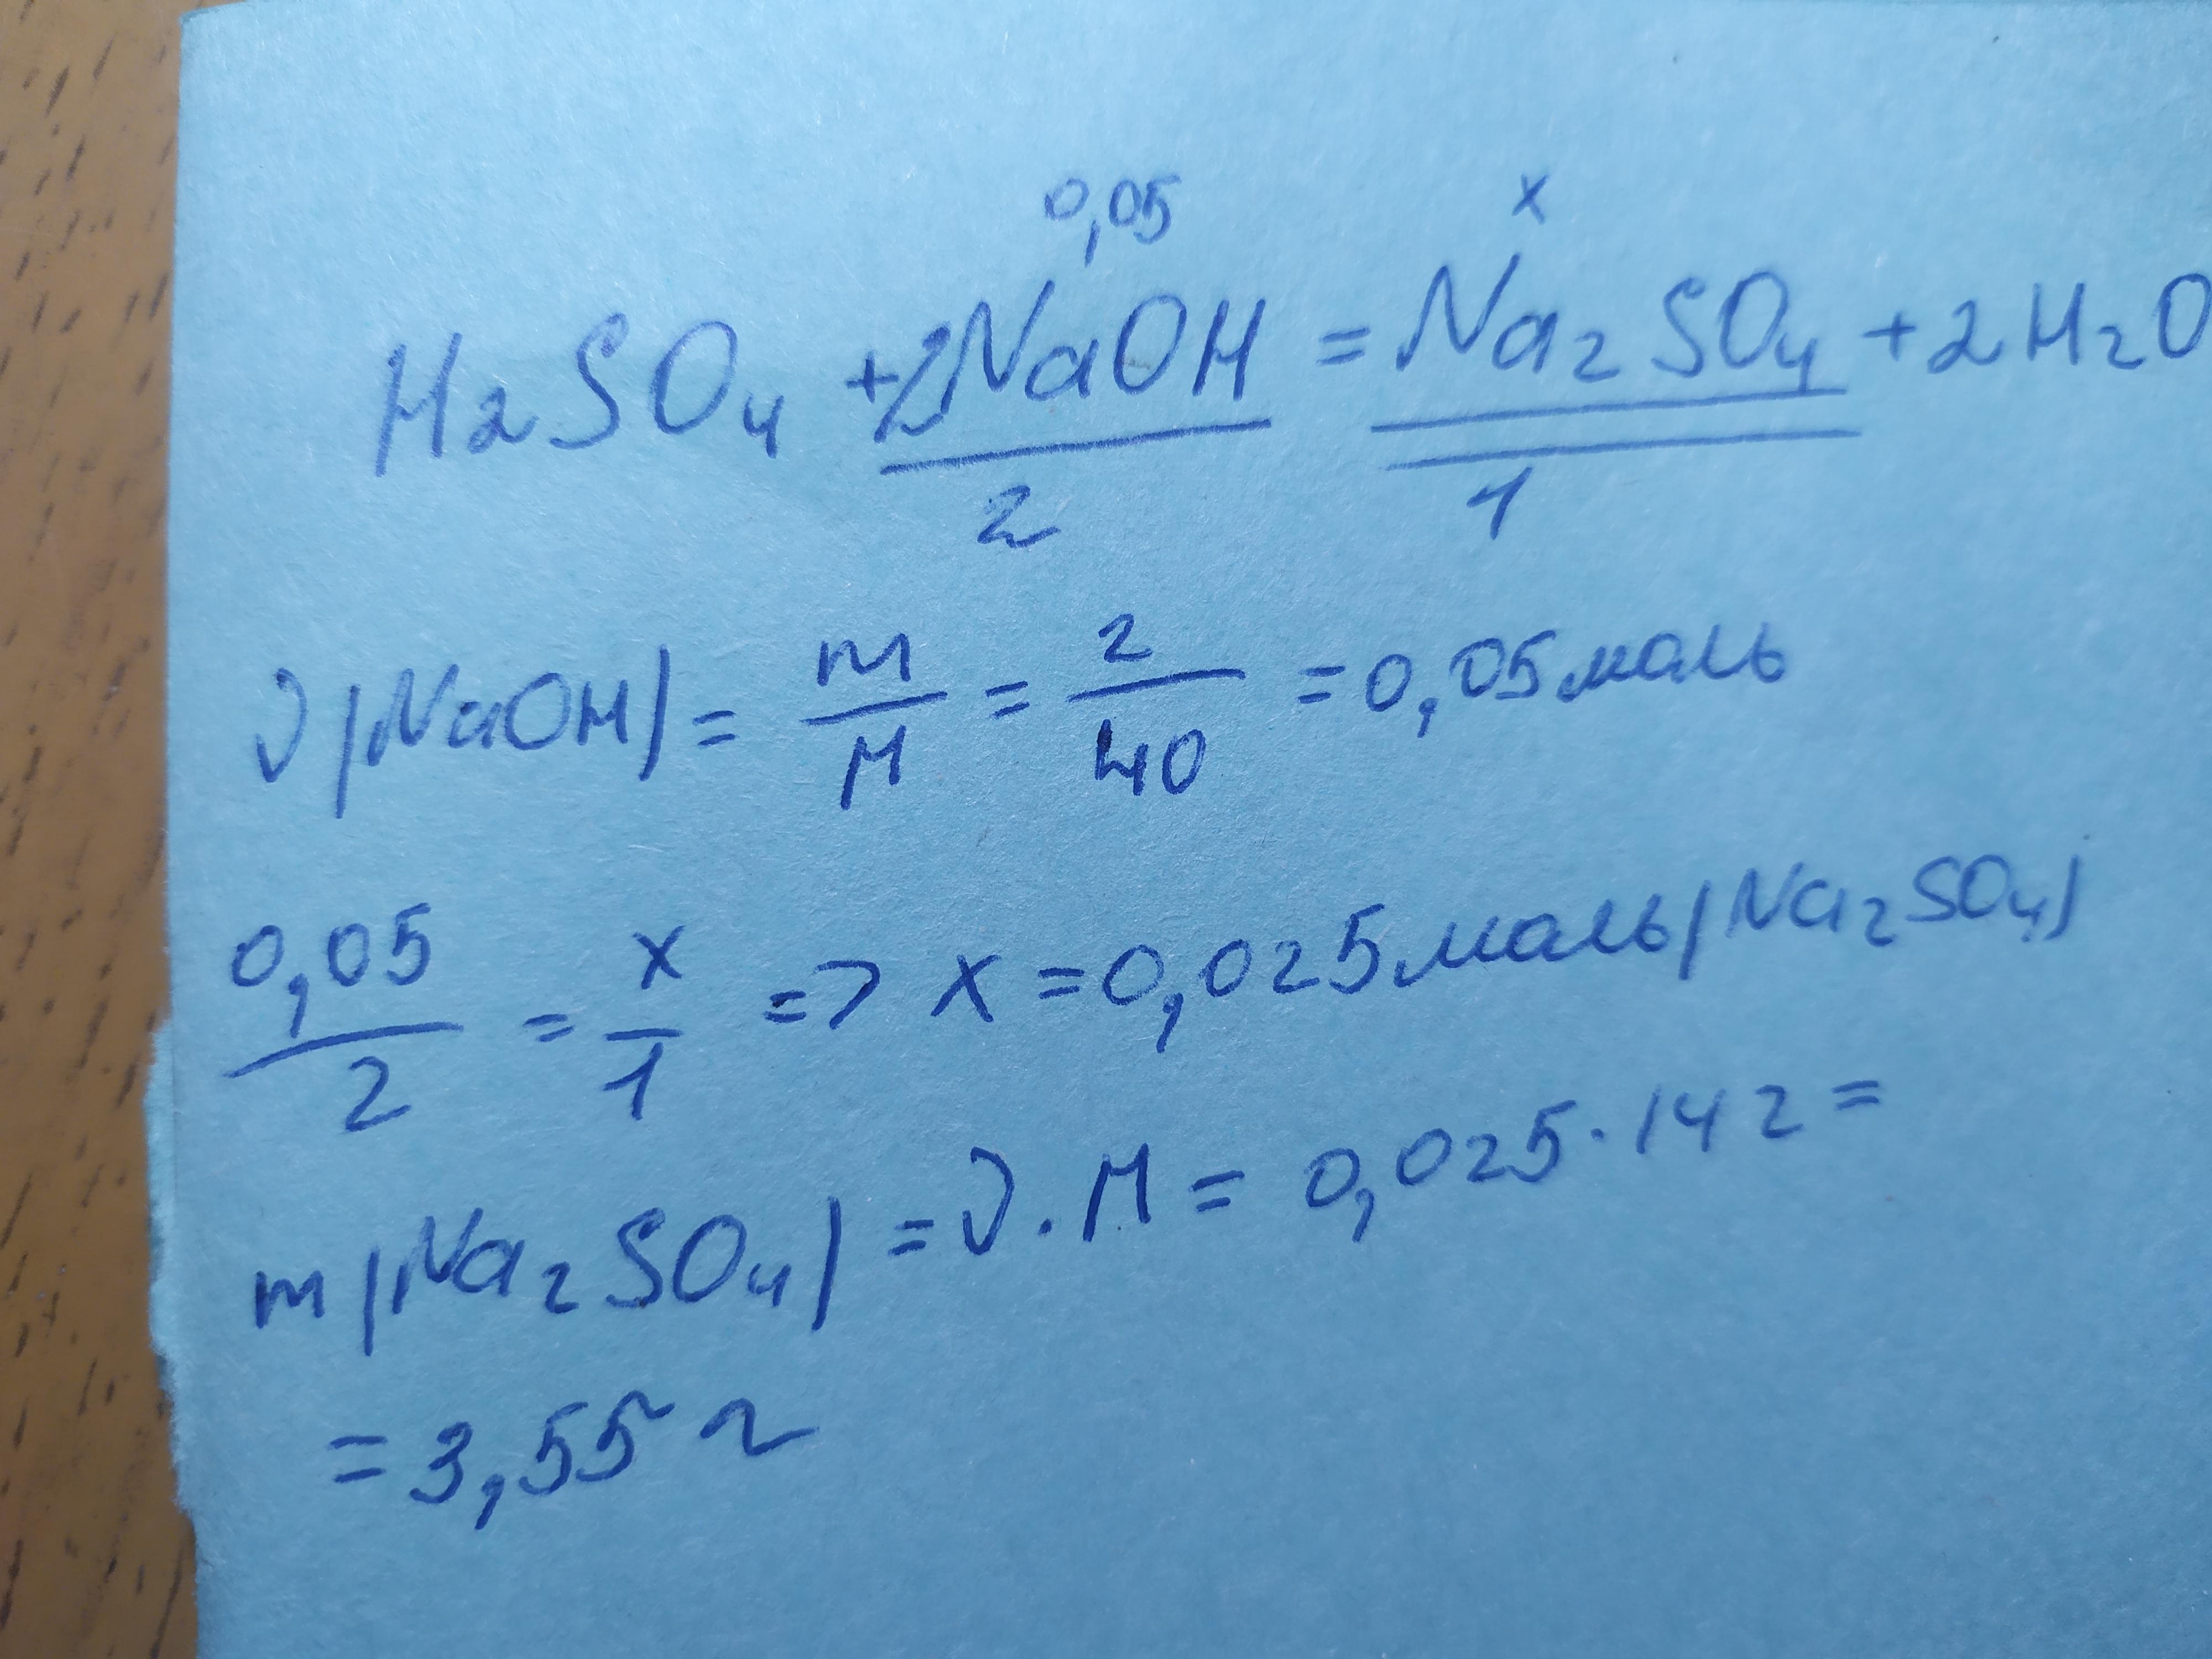 0,05 x
H₂SO₄ + 2NaOH = Na₂SO₄ + 2H₂O
2 1
ν(NaOH) = m/M = 2/40 = 0,05 моль
0,05/2 = x/1 => x = 0,025 моль (Na₂SO₄)
m(Na₂SO₄) = ν · M = 0,025 · 142 =
= 3,55 г